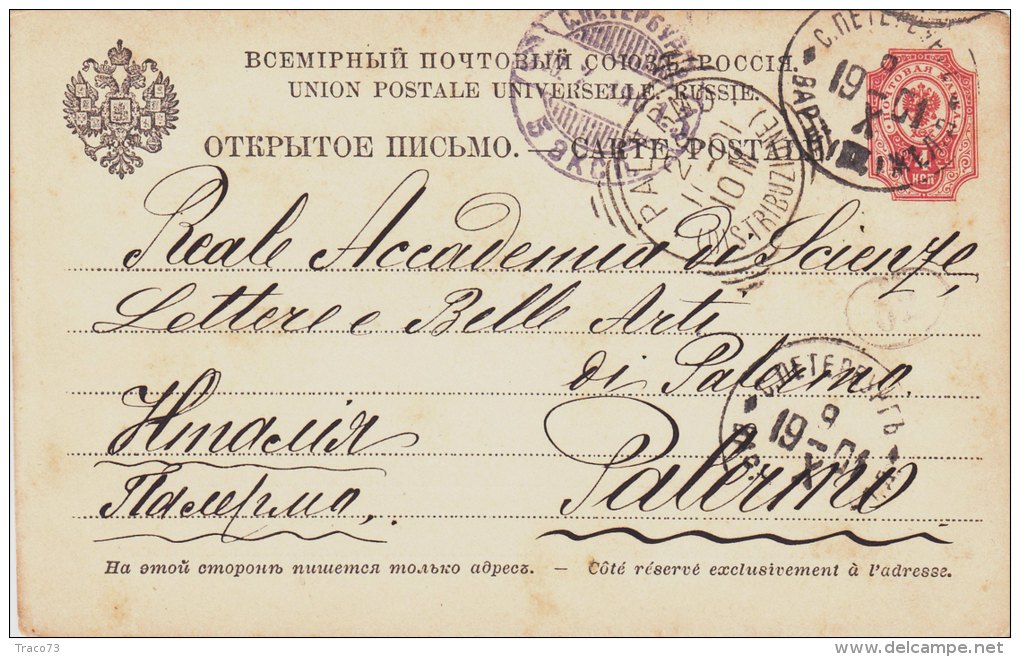 ВСЕМІРНЫЙ ПОЧТОВЫЙ СОЮЗЪ. РОССІЯ.
UNION POSTALE UNIVERSELLE. RUSSIE.
ОТКРЫТОЕ ПИСЬМО. — CARTE POSTALE.
С.ПЕТЕРБУРГ
5 эксп
PALERMO
(DISTRIBUZIONE)
12
10 M
С.ПЕТЕРБ
9
19-01
X
ВАРШ
ПОЧТОВАЯ МАРКА
КОП
Reale Accademia di Scienze,
Lettere e Belle Arti
di Palermo.
Италія
Палермо.
Palermo
С.ПЕТЕРБУРГЪ
9
19-01
X
На этой сторонѣ пишется только адресъ. — Côté réservé exclusivement à l'adresse.
Traco73